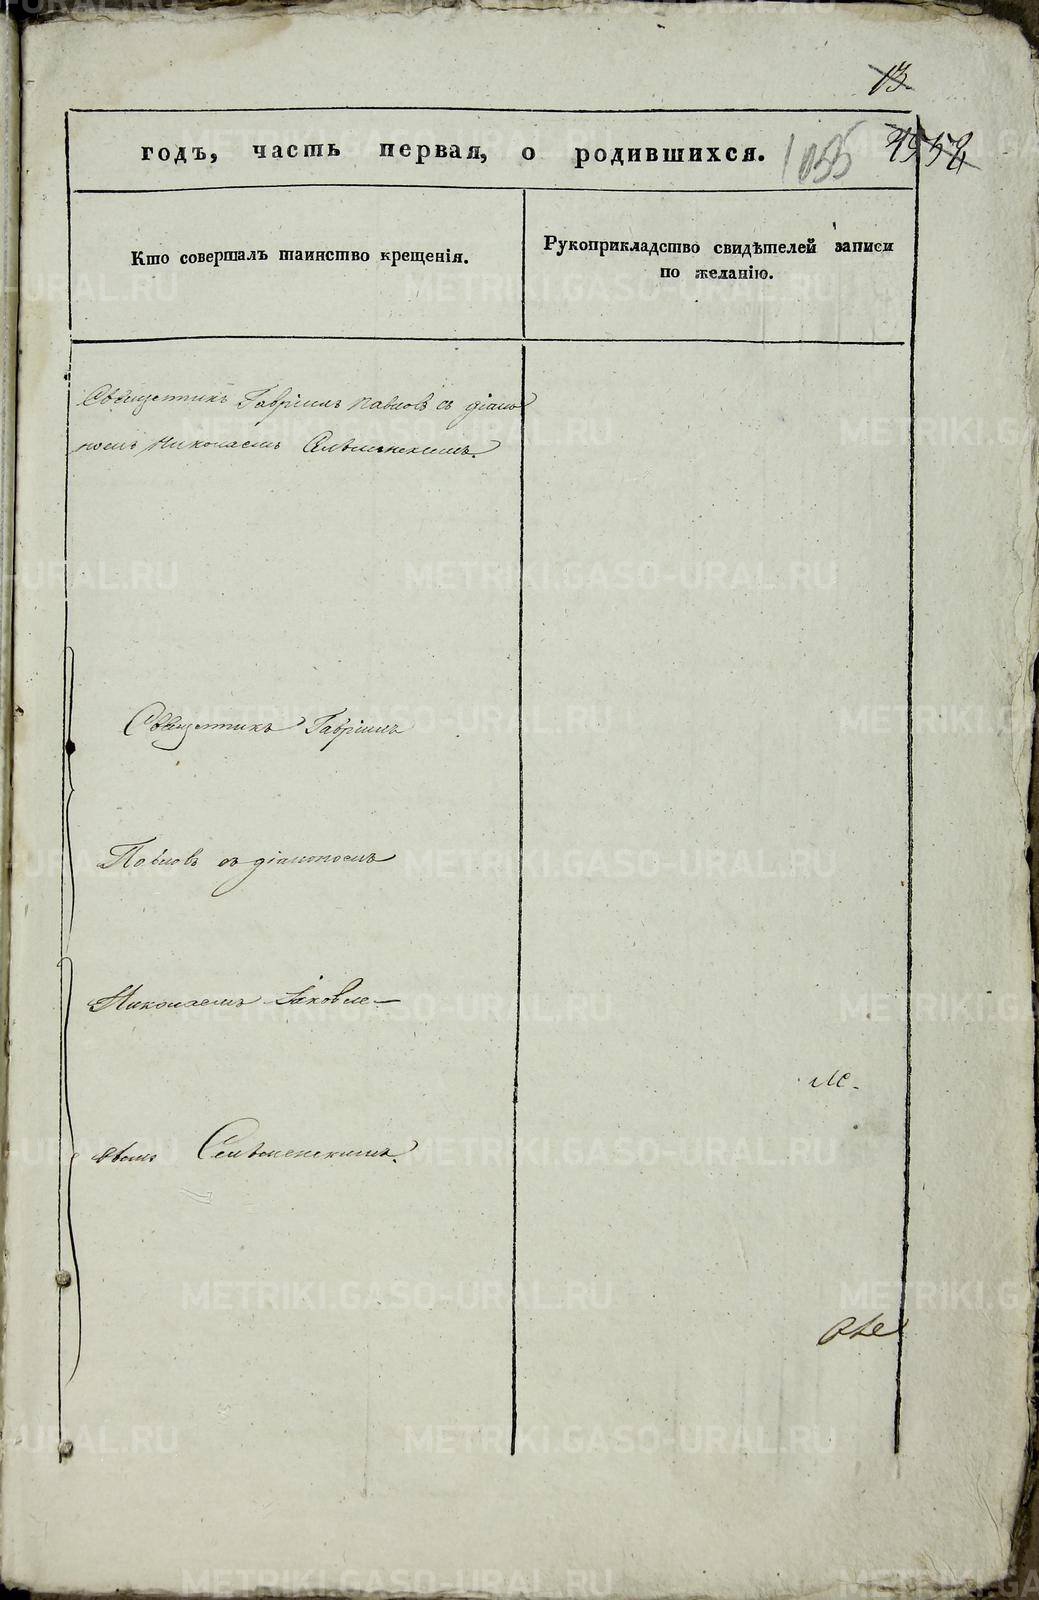 13
годъ, часть первая, о родившихся.
1055
Кто совершалъ таинство крещенія.
Рукоприкладство свидѣтелей записи
по желанію.
Священникъ Гавріилъ Павловъ съ діако
номъ Николаемъ
Священникъ Гавріилъ
Павловъ съ діакономъ
Николаемъ Іаковле-
вымъ
METRIKI.GASO-URAL.RU